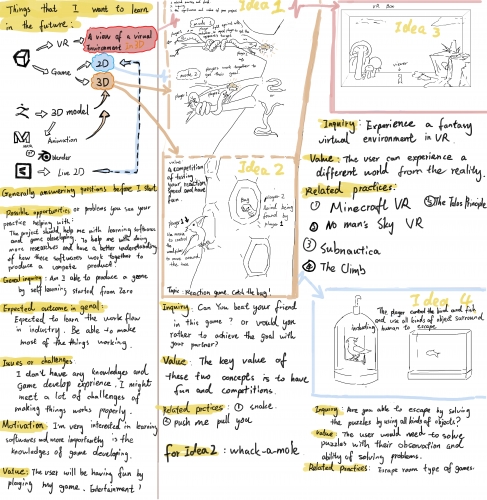 Things that I want to learn
in the future:
VR
A view of a virual
Environment in 3D
Game
2D
3D
3D model
Animation
blender
Live 2D
Generally answering questions before I start
Possible opportunities or problems you see your
practice helping with:
The project should help me with learning softwares
and game developing. To help me with doing
more researches and have a better understanding
of how these softwares work together to
produce a compete product?
General inquiry: Am I able to produce a game
by self learning started from Zero
Expected outcome in general:
Expected to learn the work flow
in industry. Be able to make
most of the things working.
Issues or challenges:
I don't have any knowledges and
game develop exprience. I might
meet a lot of challenges of
making things work properly.
Motivation: Im very interested in learning
softwares and more importantly is the
knowledges of game developing.
Value: The user will be having fun by
playing my game. Entertainment!
Idea 1
mode 1
mode 2
players work together to
get their goal
Value:
a competition
of testing
your reaction
speed and have
fun
Idea 2
player 2
avoid being
found by
player 1
Bug
player 1
to move
around the
tree
Topic: Reaction game. Catch the bug!
Inquiry: Can You beat your friend
in this game? or would you
rather to achieve the goal with
your partner?
Value: The key value of
these two concepts is to have
fun and competitions.
Related prctices: ① snake.
② push me pull you
for Idea2: whack-a-mole
VR Box
Idea 3
viewer
Inquiry: Experience a fantasy
virtual environment in VR.
Value: The user can experience a
different world from the reality.
Related practices:
① Minecraft VR
⑤ The Talos Principle
② No man's Sky VR
③ Subnautica
④ The Climb
Idea 4
The player control the bird and fish
and use all kinds of object surround
including human to escape.
Inquiry: Are you able to escape by solving
the puzzles by using all kinds of objects?
Value: The user would need to solve
puzzles with their observation and
ability of solving problems.
Related Practices: Escape room type of games.